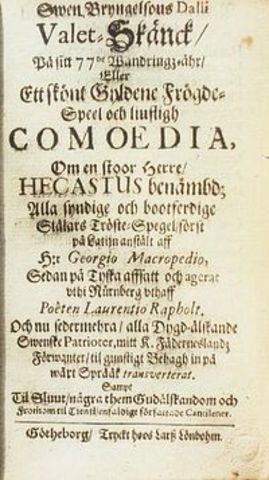 Swen Bryngelsons Dalii
Valet-Skänck/
På sitt 77de Wandringz-åhr/
Eller
Ett skönt Gyldene Frögde-
Speel och liufligh
COMOEDIA,
Om en stoor Herre/
HECASTUS benämbd;
Alla syndige och bootferdige
Siälars Tröste-Spegel/först
på Latijn anstält aff
H:r Georgio Macropedio,
Sedan på Tyska affsatt och agerat
uthi Nürnberg uthaff
Poëten Laurentio Rapholt.
Och nu sidermehra/alla Dygd-älskande
Swenske Patrioter, mitt K. Fäderneslandz
Förwanter/til gunstigt Behagh in på
wårt Språåk transverterat.
Sampt
Til Sluut/några them Gudälskandom och
Frommom til Tienst/enfaldige författade Cantilener.
Götheborg/ Tryckt hoos Larß Lönbohm.